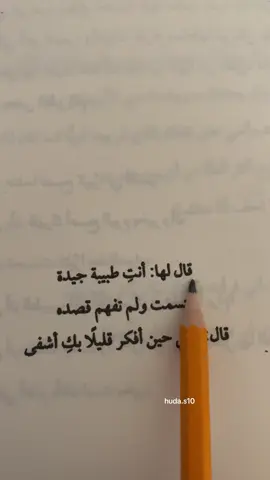 قال لها: أنتِ طبيبة جيدة
ولم تفهم قصده
قال: حين أفكر قليلًا بكِ أشفى
huda.s10